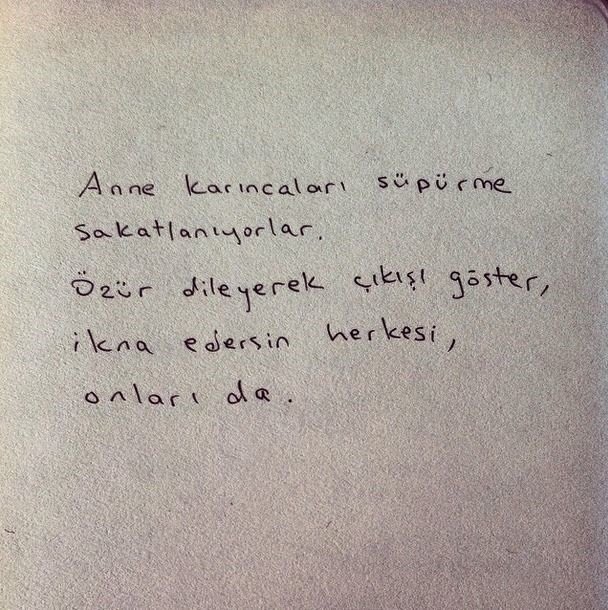 Anne karıncaları süpürme
sakatlanıyorlar.
Özür dileyerek çıkışı göster,
ikna edersin herkesi,
onları da.